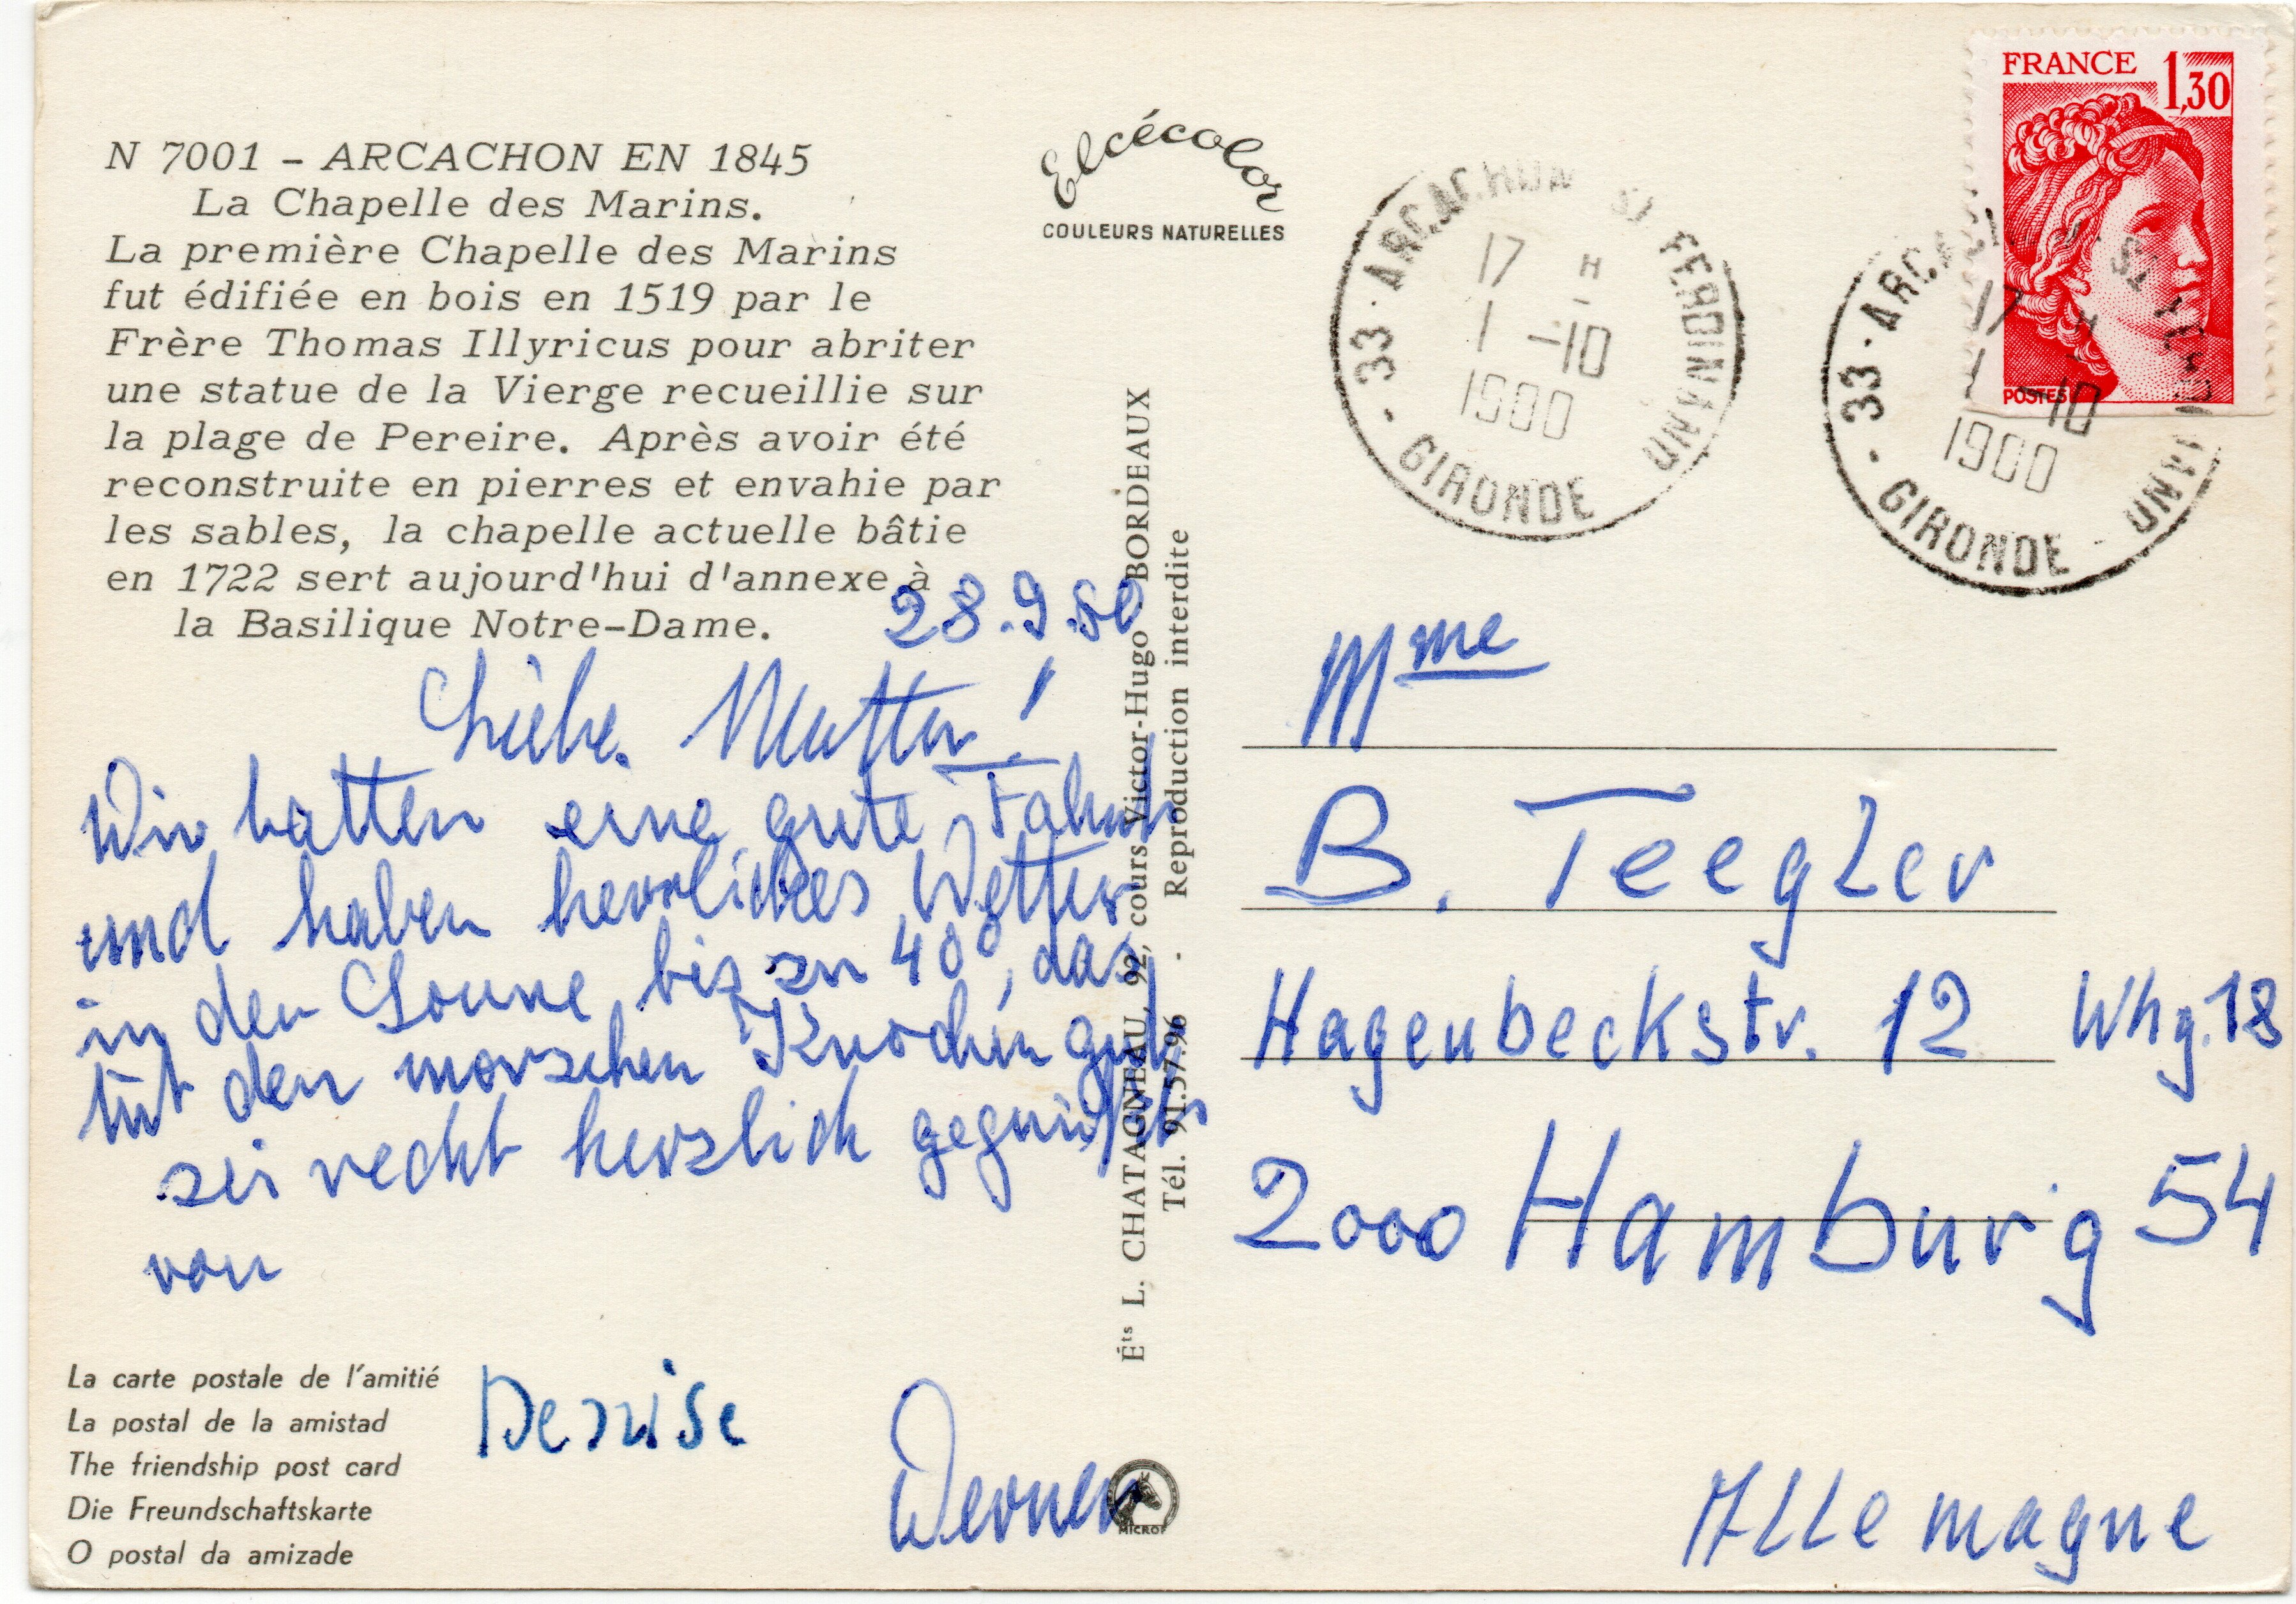 N 7001 – ARCACHON EN 1845
La Chapelle des Marins.
La première Chapelle des Marins
fut édifiée en bois en 1519 par le
Frère Thomas Illyricus pour abriter
une statue de la Vierge recueillie sur
la plage de Pereire. Après avoir été
reconstruite en pierres et envahie par
les sables, la chapelle actuelle bâtie
en 1722 sert aujourd'hui d'annexe à
la Basilique Notre-Dame.
28.9.80
Liebe Mutter!
Wir hatten eine gute Fahrt
und haben herrliches Wetter
in der Sonne bis zu 40°, das
tut den morschen Knochen gut.
sei recht herzlich gegrüßt
von
Denise
Werner
La carte postale de l'amitié
La postal de la amistad
The friendship post card
Die Freundschaftskarte
O postal da amizade
Elcécolor
COULEURS NATURELLES
Éts L. CHATAGNEAU, 92, cours Victor-Hugo - BORDEAUX
Tél. 91.57.96 - Reproduction interdite
MICROF
33 · ARCACHON St FERDINAND
17 H
1 -10
1900
- GIRONDE -
FRANCE 1,30
POSTES
33 · ARCA St INAND
17 H
1 -10
1900
- GIRONDE -
Mme
B. Teegler
Hagenbeckstr. 12 Whg. 18
2000 Hamburg 54
Allemagne